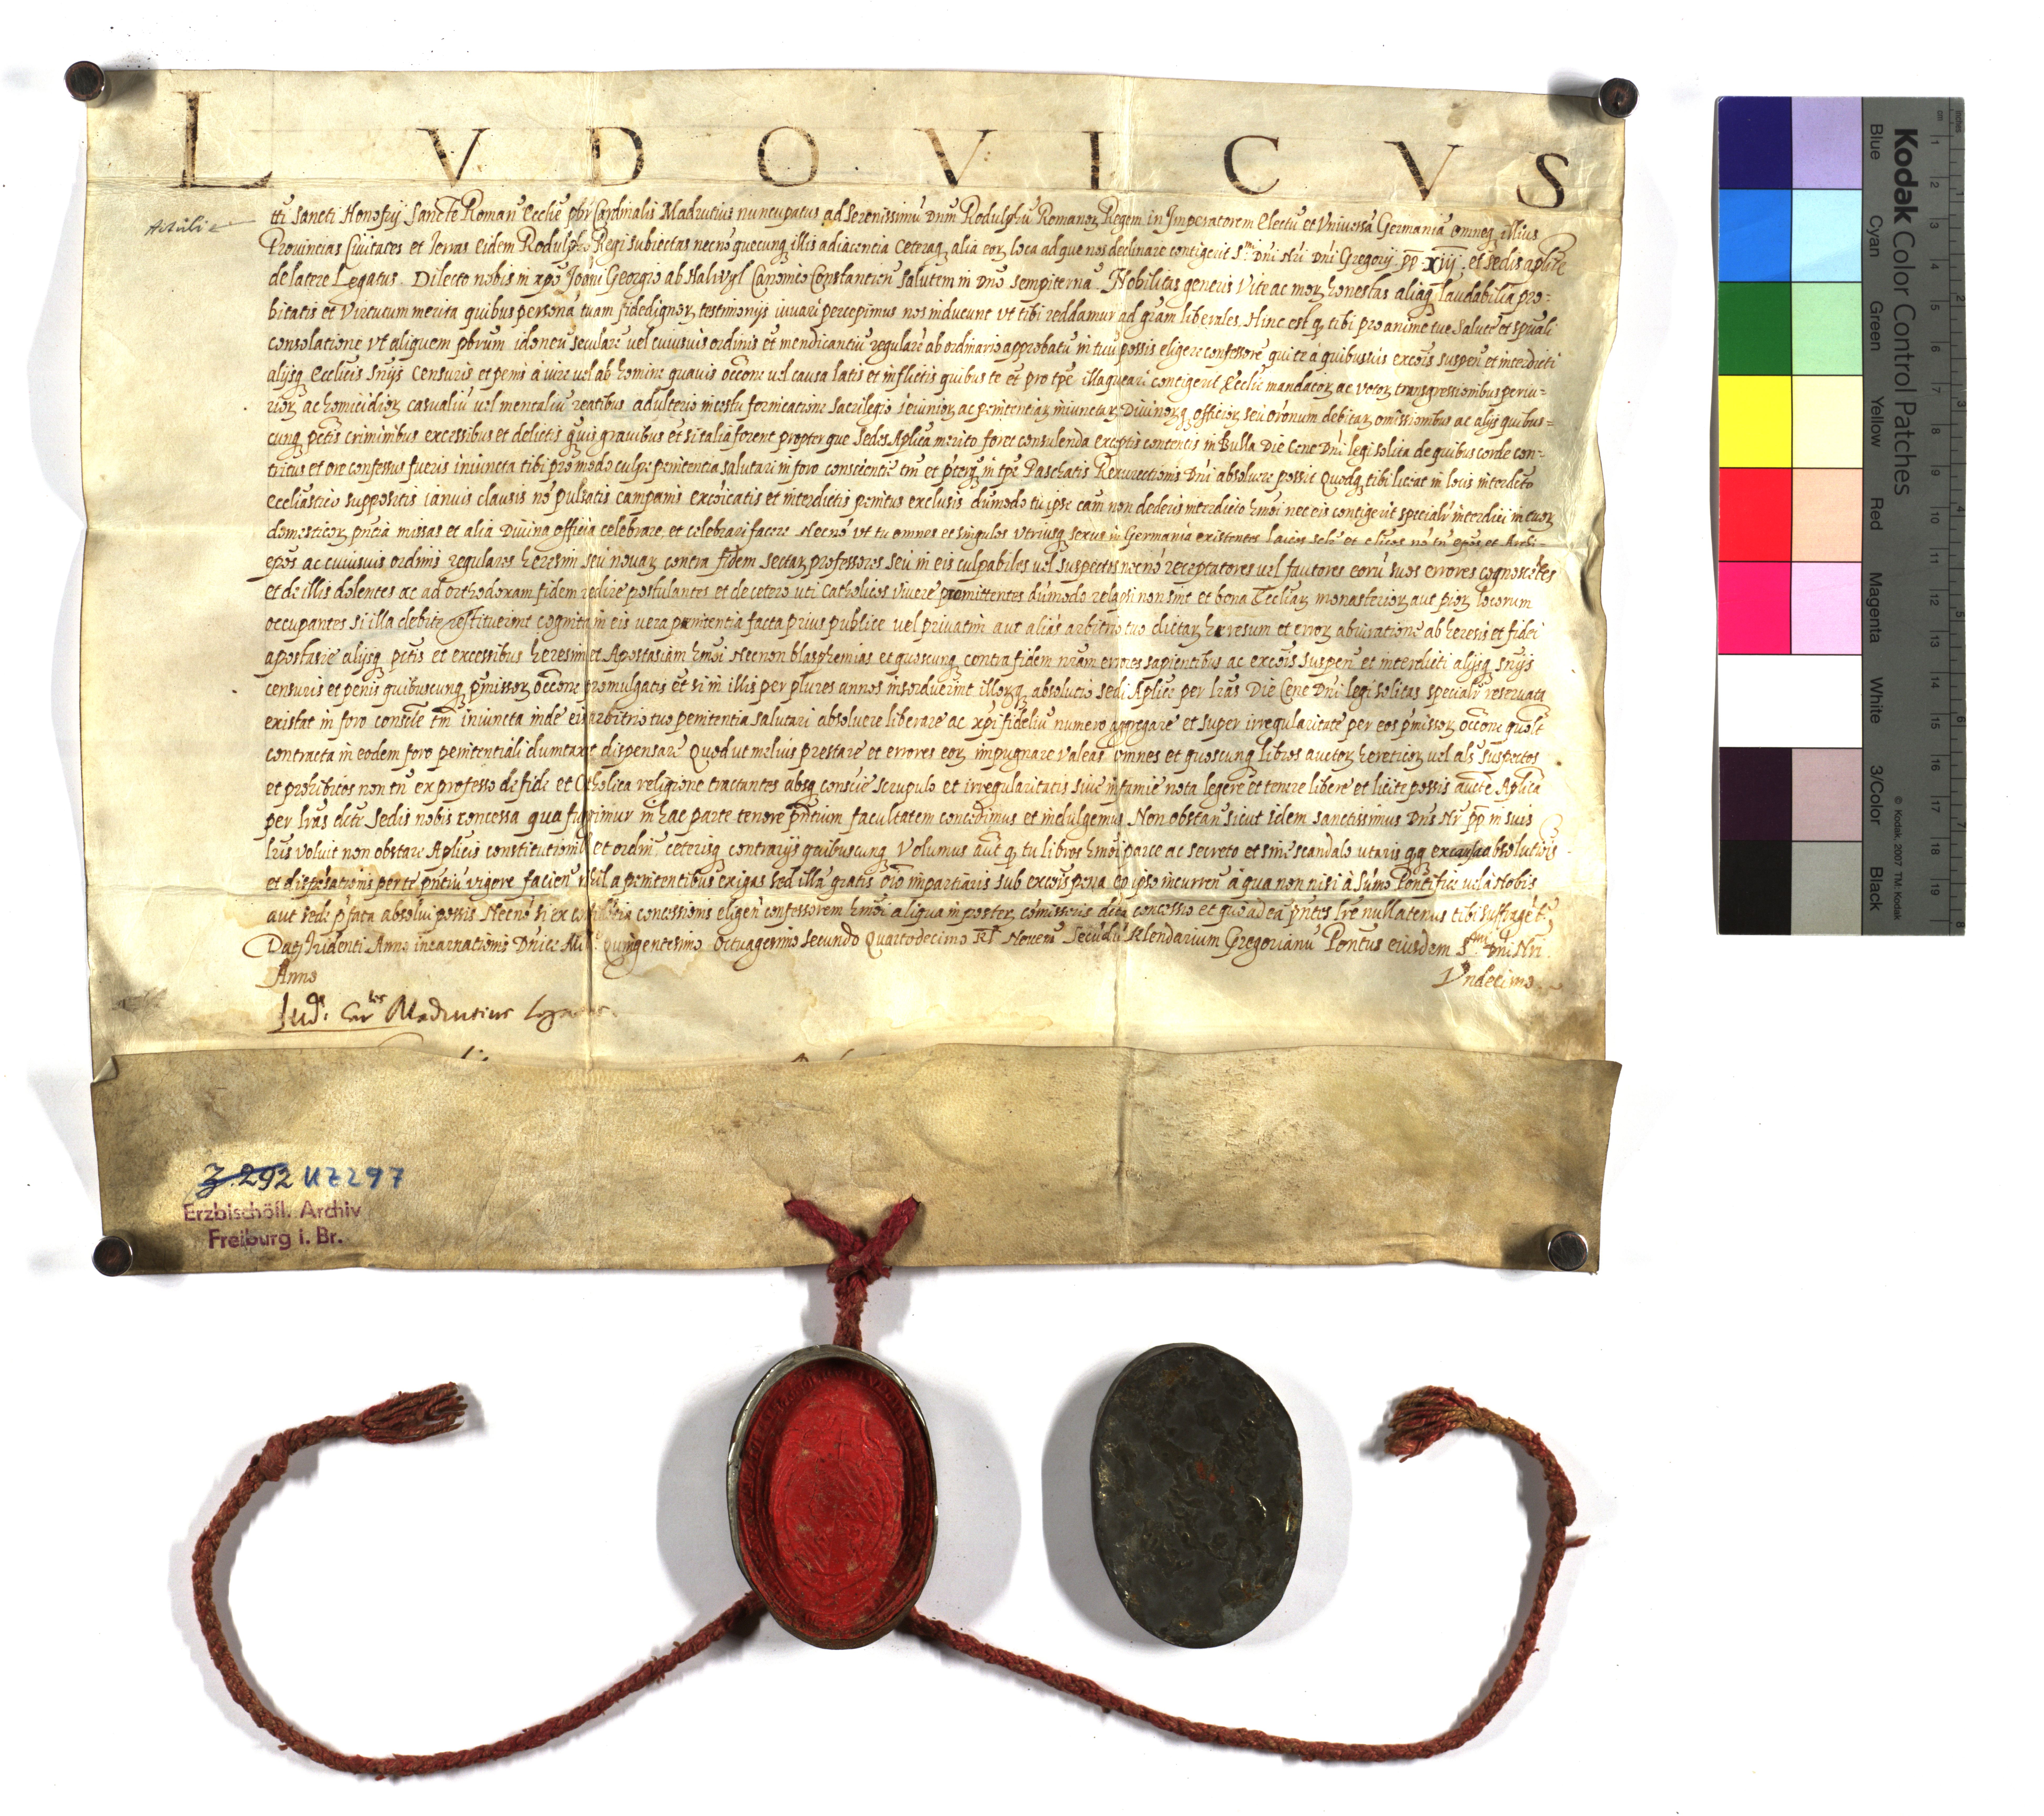 LVDOVICVS
tti Sancti Honofrij Sancte Roman Ecclie pbr Cardinalis Madrutius nuncupatus ad Serenissimu Dnm Rodulphu Romanoꝝ Regem in Imperatorem Electu et Universa Germania omnesq illius
Provincias Civitates et Terras eidem Rodulpho Regi subiectas necno quecunq illis adiacentia ceteraq alia eoꝝ loca ad que nos declinare contigerit S.mi Dni Nri Dni Gregorij pp XIII et Sedis aplice
de latere Legatus. Dilecto nobis in xpo Joani Georgio ab Halwyl Canonico Constantien Salutem in Dno sempiterna. Nobilitas generis Vite ac moꝝ honestas aliaq laudabilia pro-
bitatis et Virtutum merita quibus persona tuam fidedignoꝝ testimonijs iuvari percepimus nos inducunt vt tibi reddamur ad gram liberales. Hinc est q tibi pro anime tue Salute et spuali
consolatione vt aliquem pbrum idoneu seculare vel cuiusvis ordinis et mendicantiu regulare ab ordinario approbatu in tuu possis eligere confessore qui te a quibusvis excois suspen et interdicti
alijsq Ecclicis Snijs Censuris et penis a iure vel ab homine quavis occone vel causa latis et inflictis quibus te et pro tpe illaqueari contigerit Ecclie mandatoꝝ ac votoꝝ transgressionibus periu-
rioꝝ ac homicidioꝝ casualiu vel mentaliu reatibus adulterio incestu fornicatione Sacrilegio ieiunioꝝ ac penitentiaꝝ iniunctaꝝ Divinoꝝq officioꝝ seu orationum debitaꝝ omissionibus ac alijs quibus-
cunq pctis criminibus excessibus et delictis qtuis gravibus et si talia forent propter que Sedes Aplica merito foret consulenda exceptis contentis in Bulla Die Cene Dni legi solita de quibus corde con-
tritus et ore confessus fueris iniuncta tibi pro modo culpe penitentia salutari in foro conscientie tm et pterq in tpe Paschatis Resurrectionis Dni absolvere possit Quodq tibi liceat in locis interdicto
Eccliastico suppositis ianuis clausis no pulsatis campanis excoicatis et interdictis penitus exclusis dumodo tu ipse cam non dederis interdicto hmoi nec eis contigerit specialr interdici in tuoꝝ
domesticoꝝ pntia missas et alia Divina officia celebrare et celebrari facere Necno vt tu omnes et singulos utriusq sexus in Germania existentes laicos et clicos no tn epos et Archi-
epos ac cuiusvis ordinis regulares heresim seu novaꝝ contra fidem sectaꝝ professores seu in eis culpabiles vel suspectos necno receptatores vel fautores eoru suos errores cognoscetes
et de illis dolentes ac ad orthodoxam fidem redire postulantes et de cetero vti Catholicos vivere promittentes dumodo relapsi non sint et bona Eccliaꝝ monasterioꝝ aut pioꝝ locorum
occupantes si illa debite restituerint cognita in eis vera penitentia facta prius publice vel privatim aut alias arbitrio tuo dictaꝝ heresum et erroꝝ abiuratione ab heresis et fidei
apostasie alijsq pctis et excessibus heresim et Apostasiam hmoi Necnon blasphemias et quoscunq contra fidem nram errores sapientibus ac excois suspen et interdicti alijsq snijs
censuris et penis quibuscunq pmissoꝝ occone promulgatis et si in illis per plures annos insorduerint illoꝝq absolutio sedi Aplice per lras Die Cene Dni legi solitas specialr reservata
existat in foro conscie tm iniuncta inde eis arbitrio tuo penitentia salutari absolvere liberare ac xpi fideliu numero aggregare et super irregularitate per eos pmissoꝝ occone
contracta in eodem foro penitentiali dumtaxat dispensare Quod ut melius prestare et errores eoꝝ impugnare valeas omnes et quoscunq libros auctoꝝ hereticoꝝ vel als suspectos
et prohibitos non tn ex professo de fide et Catholica religione tractantes absq conscie scrupulo et irregularitatis sive infamie nota legere et tenere libere et licite possis aucte Aplica
per lras dicte Sedis nobis concessa qua fungimur in hac parte tenore pntium facultatem concedimus et indulgemus Non obstan sicut idem sanctissimus Dns Nr pp in suis
lris voluit non obstare Aplicis constitutionibus et ordin ceterisq contrarijs quibuscunq Volumus aut q tu libros hmoi parce ac secreto et sine scandalo utaris qq ex causa absolutionis
et dispesationis per te pntiu vigore facien nihil a penitentibus exigas sed illa gratis oio impartiaris sub excois pena eo ipso incurren a qua non nisi a Sumo Pontifice vel a Nobis
aut sede pfata absolvi possis Necno si ex confidentia concessionis eligen confessorem hmoi aliqua in poster comiseris dicta concessio et quo ad ea pntes lre nullatenus tibi suffragetr.
Dat Tridenti Anno incarnationis Dnice Mill.o quingentesimo octuagesimo secundo Quartodecimo Kl Novem Secudu Klendarium Gregorianu Pontus eiusdem S.mi Dni Nri
Anno Vndecimo.
Lud. Car.lis Madrutius Legatus.
Z. 292 UZ297
Erzbischöfl. Archiv
Freiburg i. Br.
Kodak Color Control Patches
© Kodak, 2007 TM: Kodak
Blue Cyan Green Yellow Red Magenta White 3/Color Black
cm 1 2 3 4 5 6 7 8 9 10 11 12 13 14 15 16 17 18 19
inches 1 2 3 4 5 6 7 8